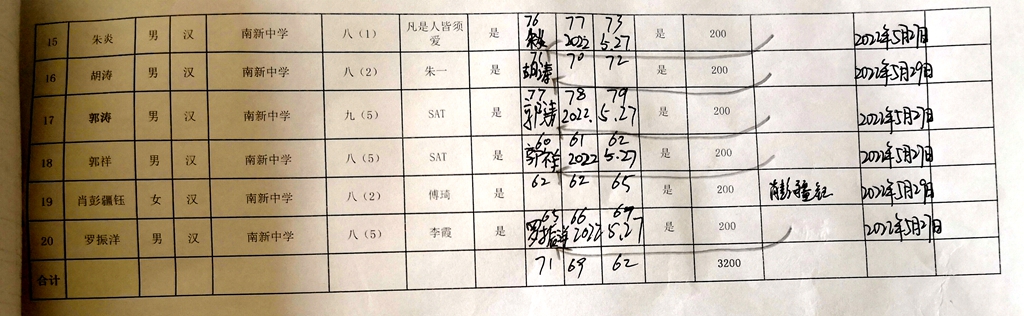 15 朱炎 男 汉 南新中学 八（1） 凡是人皆须爱 是 76 77 73 朱炎 2022 5.27 是 200 2022年5月27日
16 胡涛 男 汉 南新中学 八（2） 朱一 是 71 70 72 胡涛 是 200 2022年5月29日
17 郭涛 男 汉 南新中学 九（5） SAT 是 77 78 79 郭涛 2022. 5.27 是 200 2022年5月27日
18 郭祥 男 汉 南新中学 八（5） SAT 是 60 61 62 郭祥 2022 5.27 是 200 2022年5月27日
19 肖彭疆钰 女 汉 南新中学 八（2） 傅琦 是 62 62 65 是 200 肖彭疆钰 2022年5月29日
20 罗振洋 男 汉 南新中学 八（5） 李霞 是 65 66 69 罗振洋 2022 5.27 是 200 2022年5月27日
合计 71 69 62 3200